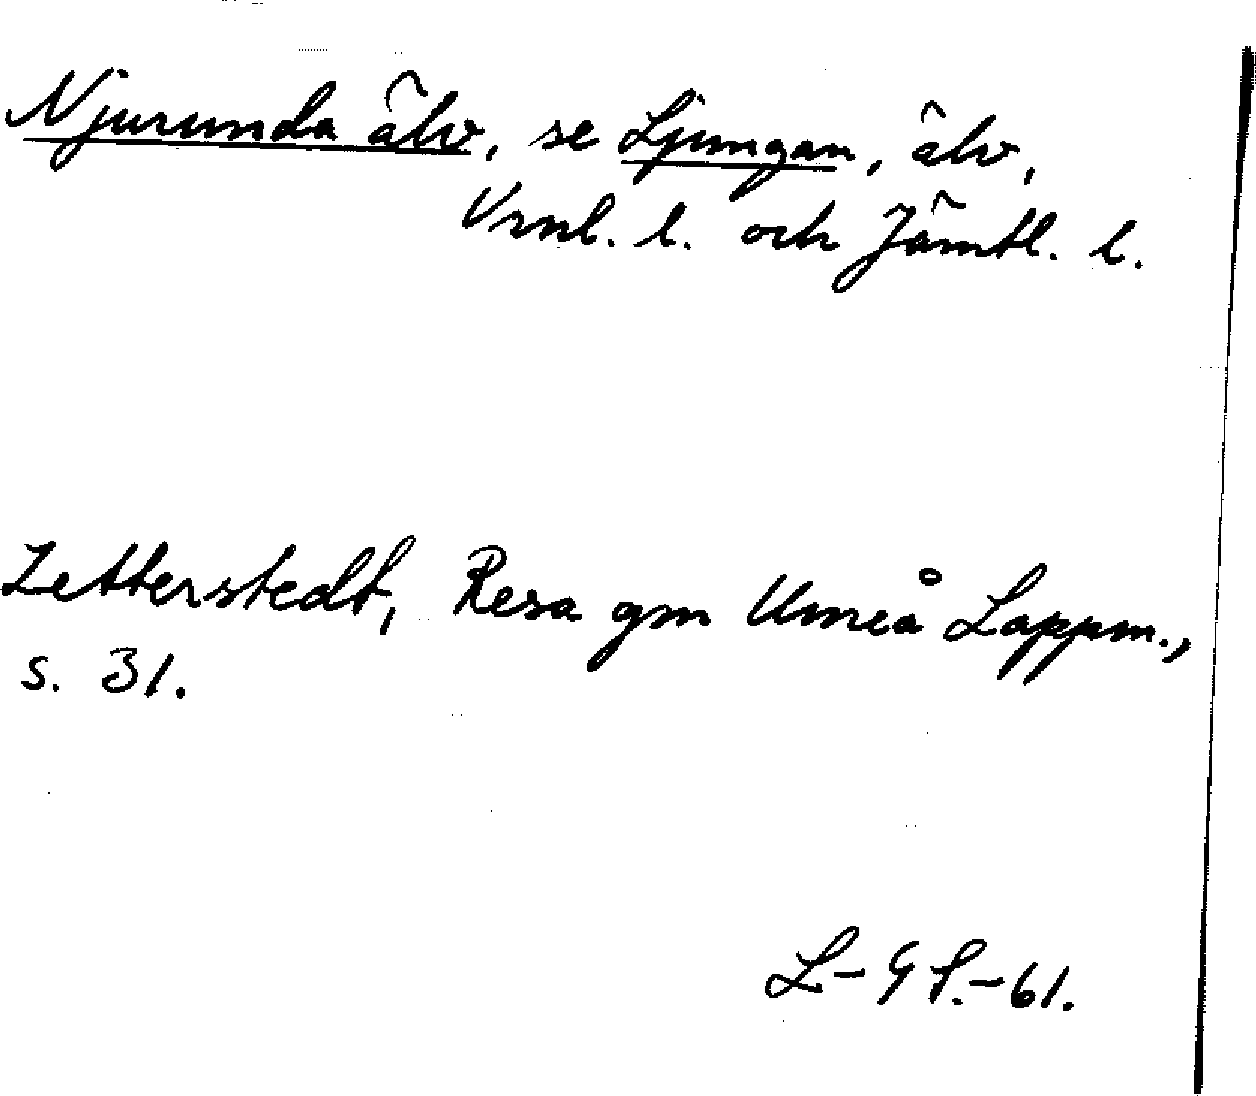 Njurunda älv, se Ljungan, älv,
Vrnl. l. och Jämtl. l.
Zetterstedt, Resa gm Umeå Lappm.,
s. 31.
L-G f.-61.